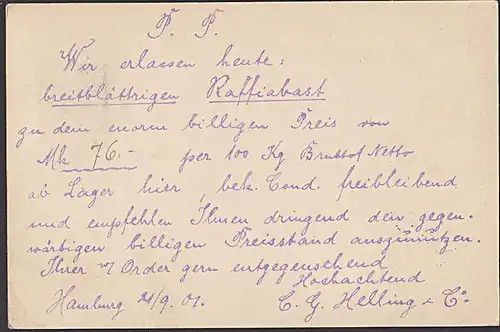 P. P.
Wir erlassen heute:
breitblättrigen Raffiabast
zu dem enorm billigen Preis von
Mk 76.- per 100 Kg Brutto f. Netto
ab Lager hier, bek. Cond. freibleibend
und empfehlen Ihnen dringend den gegen-
wärtigen billigen Preisstand auszunutzen.
Ihrer Order gern entgegensehend
Hochachtend
Hamburg 21/9. 01. C. G. Helling & Co.